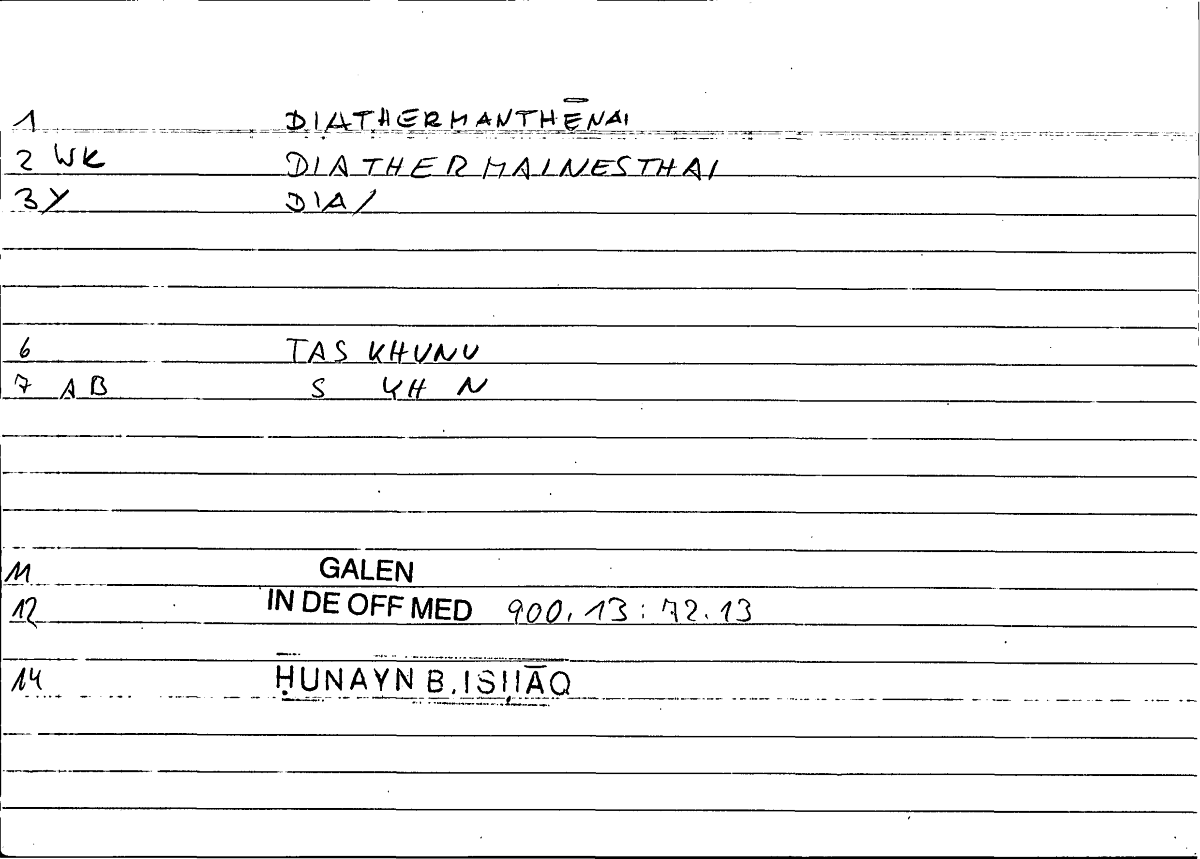 1 DIATHERMANTHĒNAI
2 WK DIATHERMAINESTHAI
3 Y DIA/
6 TAS KHUNU
7 AB S KH N
11 GALEN
12 IN DE OFF MED 900.13:72.13
14 ḤUNAYN B.ISḤĀQ